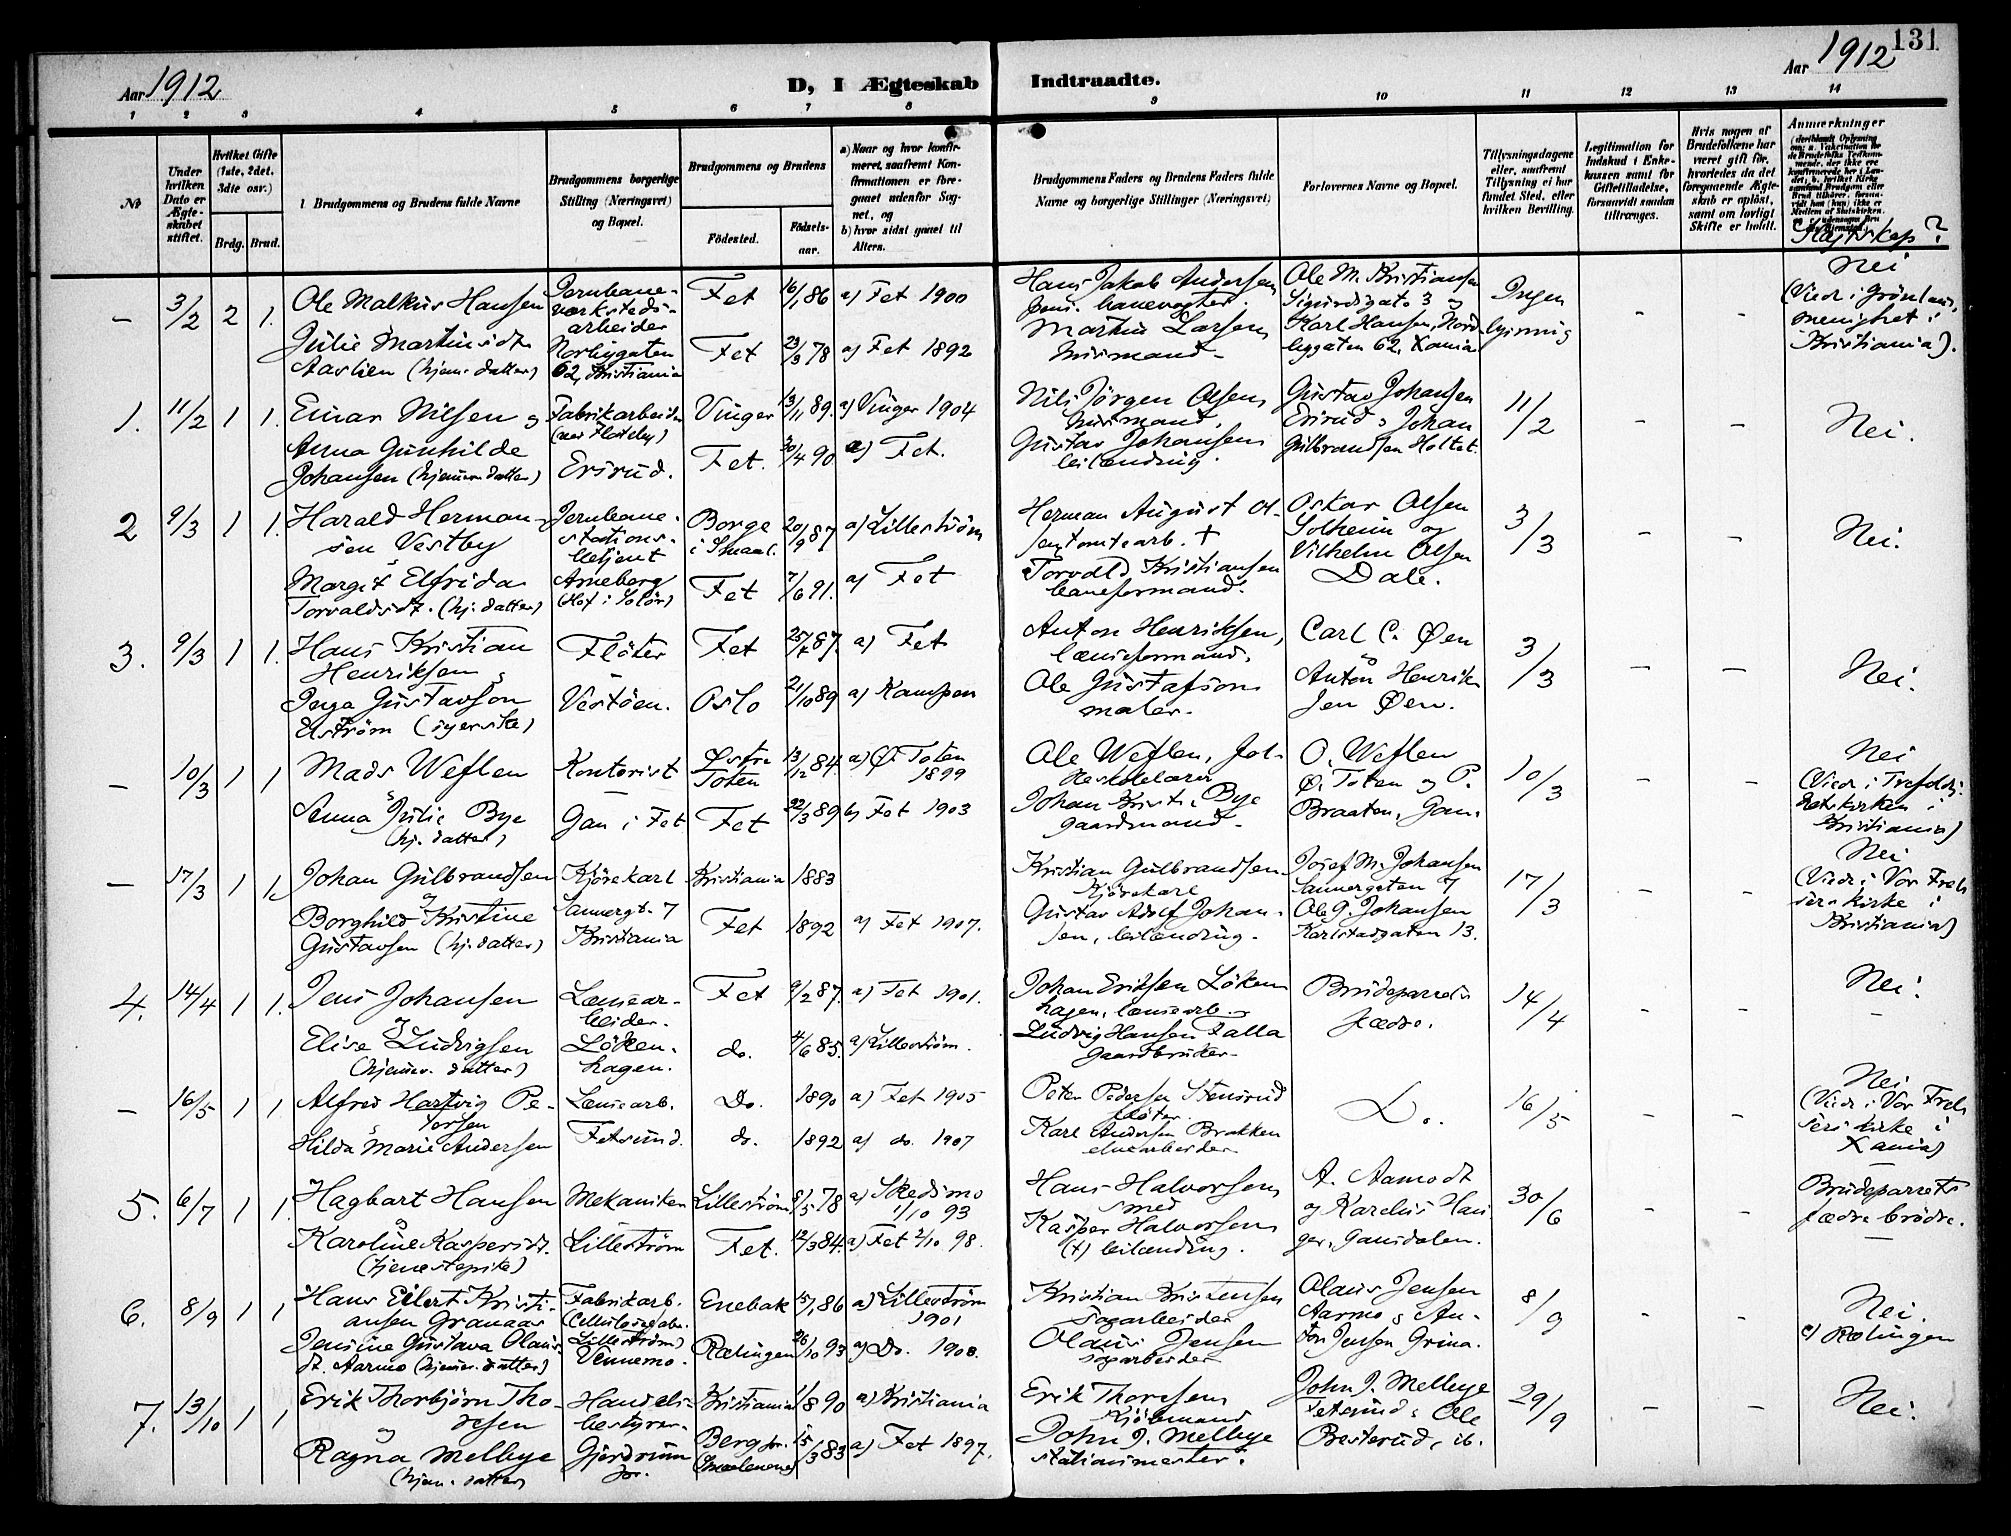 131
Aar 1912
D, I Ægteskab Indtraadte.
Aar 1912
1 2 3 4 5 6 7 8 9 10 11 12 13 14
№
Under hvilken Dato er Ægteskabet stiftet.
Hvilket Gifte (1ste, 2det, 3die osv.)
Brdg. Brud.
Brudgommens og Brudens fulde Navne
Brudgommens borgerlige Stilling (Næringsvei) og Bopæl.
Brudgommens og Brudens
Fødested. Fødselsaar.
a) Naar og hvor konfirmeret, saafremt Konfirmationen er foregaaet udenfor Sognet, og
b) hvor sidst gaaet til Alters.
Brudgommens Faders og Brudens Faders fulde Navne og borgerlige Stillinger (Næringsvei)
Forlovernes Navne og Bopæl.
Tillysningsdagene eller, saafremt Tillysning ei har fundet Sted, efter hvilken Bevilling.
Legitimation for Indskud i Enkekassen samt for Giftetilladelse, forsaavidt saadan tiltrænges.
Hvis nogen af Brudefolkene har været gift før, hvorledes da det foregaaende Ægteskab er opløst, samt om lovligt Skifte er holdt.
Anmærkninger
Slegtskap?
– 3/2 2 1. Ole Malkus Hansen Jernbane- Fet 16/1 86 a) Fet 1900 Hans Jakob Andersen Ole M. Kristiansen Ingen – – Nei
verkstedsarbeider pens. banevogter. Sigurdsgate 3 og lysning (Viedr i Grønlands
Julie Martinsdt. Norbygaten Fet 23/9 78 a) Fet 1892 Martin Larsen Karl Hansen, Nord menighet i
Aaslien (hjem. datter) 62, Kristiania husmand bygaten 62, Kania Kristiania).
1. 11/2 1 1. Einar Nilsen og Fabrikarbeider Vinger 13/11 89. a) Vinger 1904 Nils Jørgen Olsen Gustav Johansen 11/2 – – Nei.
husmand. Ersrud, Johan
Anna Gunhilde Fet. 30/4 90 a) Fet. Gustav Johansen Gulbrandsen Holtet
Johansen (hjemv. datter) Ersrud. leilænding.
2 9/3 1 1. Harald Herman- Jernbane- Borge 20/9 87 a) Lillestrøm Herman August Ol- Oskar Olsen 3/3 – – Nei.
sen Vestby stations- i Smaal. sen, tomtearb. † Solheim og
betjent Vilhelm Olsen
Margit Elfrida Arneberg Fet 7/6 91. a) Fet Torvald Kristiansen Dale.
Torvaldsdt. (hj. datter) (Hof i Solør) baneformand.
3. 9/3 1 1. Hans Kristian Fløter Fet 25/7 87. a) Fet Anton Henriksen, Carl C. Øen 3/3 – – Nei.
Henriksen lænseformand. og
Inga Gustavson Vestøen. Oslo 21/10 89 a) Kampen Ole Gustafson Anton Henrik
Elström (syerske) maler. sen Øen.
– 10/3 1 1 Mads Weflen Kontorist Østre 13/12 84. a) Ø. Toten Ole Weflen, fol- O. Weflen 10/3 – – Nei
Toten 1899 keskolelærer Ø. Toten og P. (Viedr i Trefoldig-
Anna Julie Bye Gan i Fet Fet 22/3 89 b) Fet 1903 Johan Krist. Bye Braaten, Gan. hetskirken i
(hj. datter) gaardmand. Kristiania)
– 17/3 1 1. Johan Gulbrandsen Kjørekarl Kristiania 1883 Kristian Gulbrandsen Josef M. Johansen 17/3 – – Nei
kjørekarl Sannergaten 7 (Viedr i Vor Frel
Borghild Kristine Sannergt. 7 Fet 1892 a) Fet 1907. Gustav Adolf Johan- Ole G. Johansen sers kirke i
Gustavsen (hj. datter) Kristiania sen, leilænding. Karlstadgaten 13. Kristiania)
4. 14/4 1 1. Jens Johansen Lænsear- Fet 9/2 87. a) Fet 1901. Johan Eriksen Løken Brudeparrets 14/4 – – Nei.
beider. hagen, lænsearb. fædre.
Elise Ludvigsen Løken- do. 4/6 85. a) Lillestrøm. Ludvig Hansen Falla
(hjemv. datter) hagen. gaardbruker.
– 16/5 1 1 Alfred Hartvig Pe- Lænsearb. Do. 1890 a) Fet 1905 Peter Pedersen Stensrud Do. 16/5 – – Nei
tersen fløter. (Viedr i Vor Frel
Hilda Marie Andersen Fetsund. do. 1892 a) do. 1907 Karl Andersen Brakken sers kirke i
elvearbeider Kania)
5. 6/7 1 1. Hagbart Hansen Mekaniker Lillestrøm 8/5 78 a) Skedsmo Hans Halvorsen A. Aamodt 30/6 – – Brudeparrets
1/10 93 smed og Karelius Han fædre brødre.
Karoline Kaspersdt. Lillestrøm Fet. 12/3 84. a) Fet 2/10 98. Kasper Halvorsen ger, Gansdalen.
(tjenestepike) (†) leilænding.
6. 8/9 1 1 Hans Eilert Kristi- Fabrikarb. Enebak 15/1 86 a) Lillestrøm Kristian Kristensen Olaus Jensen 8/9 – – Nei.
ansen Granaas (Cellulosefabr. 1901 sagarbeider Aarmo, An- c) Rælingen
Jensine Gustava Olaus- Lillestrøm) Rælingen 26/10 93 a) Do. 1908. Olaus Jensen ton Jensen Grina.
dt. Aarmo (hjemv. datter) Vennemo. sagarbeider
7. 13/10 1 1 Erik Thorbjørn Tho- Handels- Kristiania 1/8 90 a) Kristiania Erik Thoresen John J. Mellbye 29/9 – – Nei.
resen bestyrer. kjøbmand Fetsund, Ole
Ragna Mellbye Gjerdrum Berg pr. 15/3 83 a) Fet 1897. John J. Mellbye Besterud, ib.
(hjem. datter) pr. (Smaalenene) stationsmester.